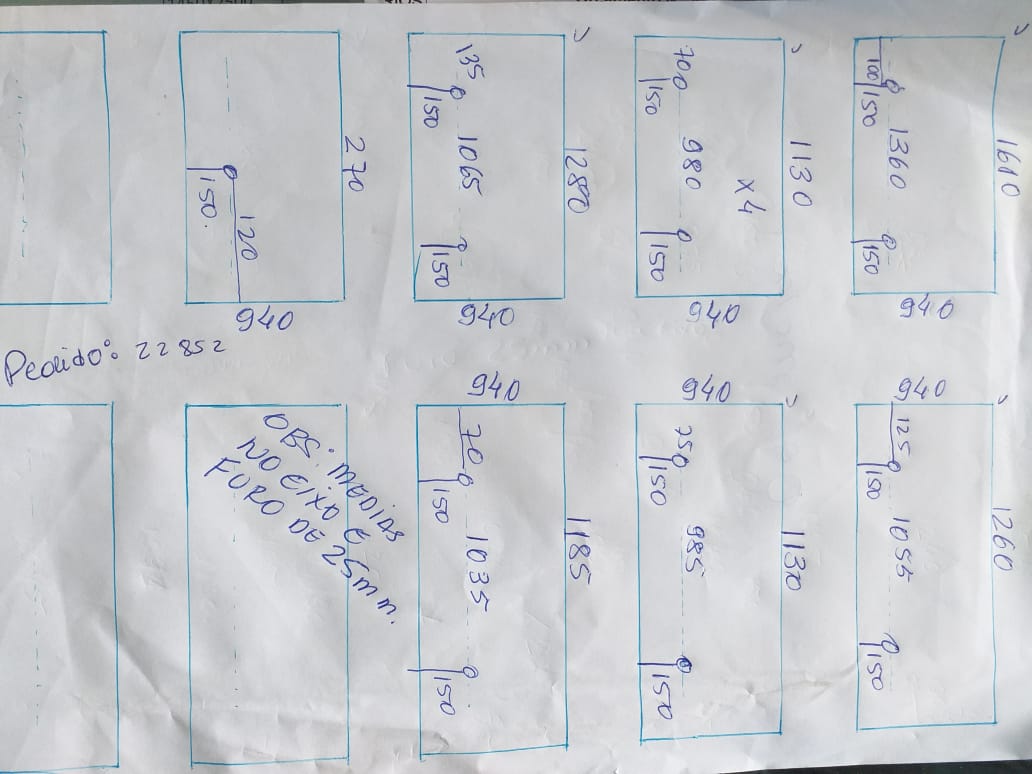 1610
100
150
1360
150
940
1130
x4
70
150
980
150
940
1280
135
150
1065
150
940
270
150.
120
940
Pedido: 22852
940
125
150
1055
150
1260
940
75
150
985
150
1130
940
70
150
1035
150
1185
OBS: MEDIDAS
NO EIXO E
FURO DE 25mm.